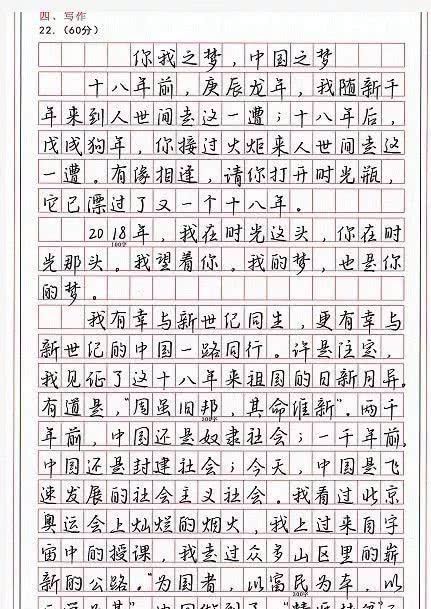 四、写作
22．（60分）
你我之梦，中国之梦
十八年前，庚辰龙年，我随新千
年来到人世间走这一遭；十八年后，
戊戌狗年，你接过火炬来人世间走这
一遭。有缘相逢，请你打开时光瓶，
它已漂过了又一个十八年。
2018年，我在时光这头，你在时
100字
光那头。我望着你。我的梦，也是你
的梦。
我有幸与新世纪同生，更有幸与
新世纪的中国一路同行。许是注定，
我见证了这十八年来祖国的日新月异。
有道是，“周虽旧邦，其命维新”。两千
200字
年前，中国还是奴隶社会；一千年前，
中国还是封建社会；今天，中国是飞
速发展的社会主义社会。我看过北京
奥运会上灿烂的烟火，我上过来自宇
宙中的授课，我走过众多山区里的崭
新的公路。“为国者，以富民为本，以
300字